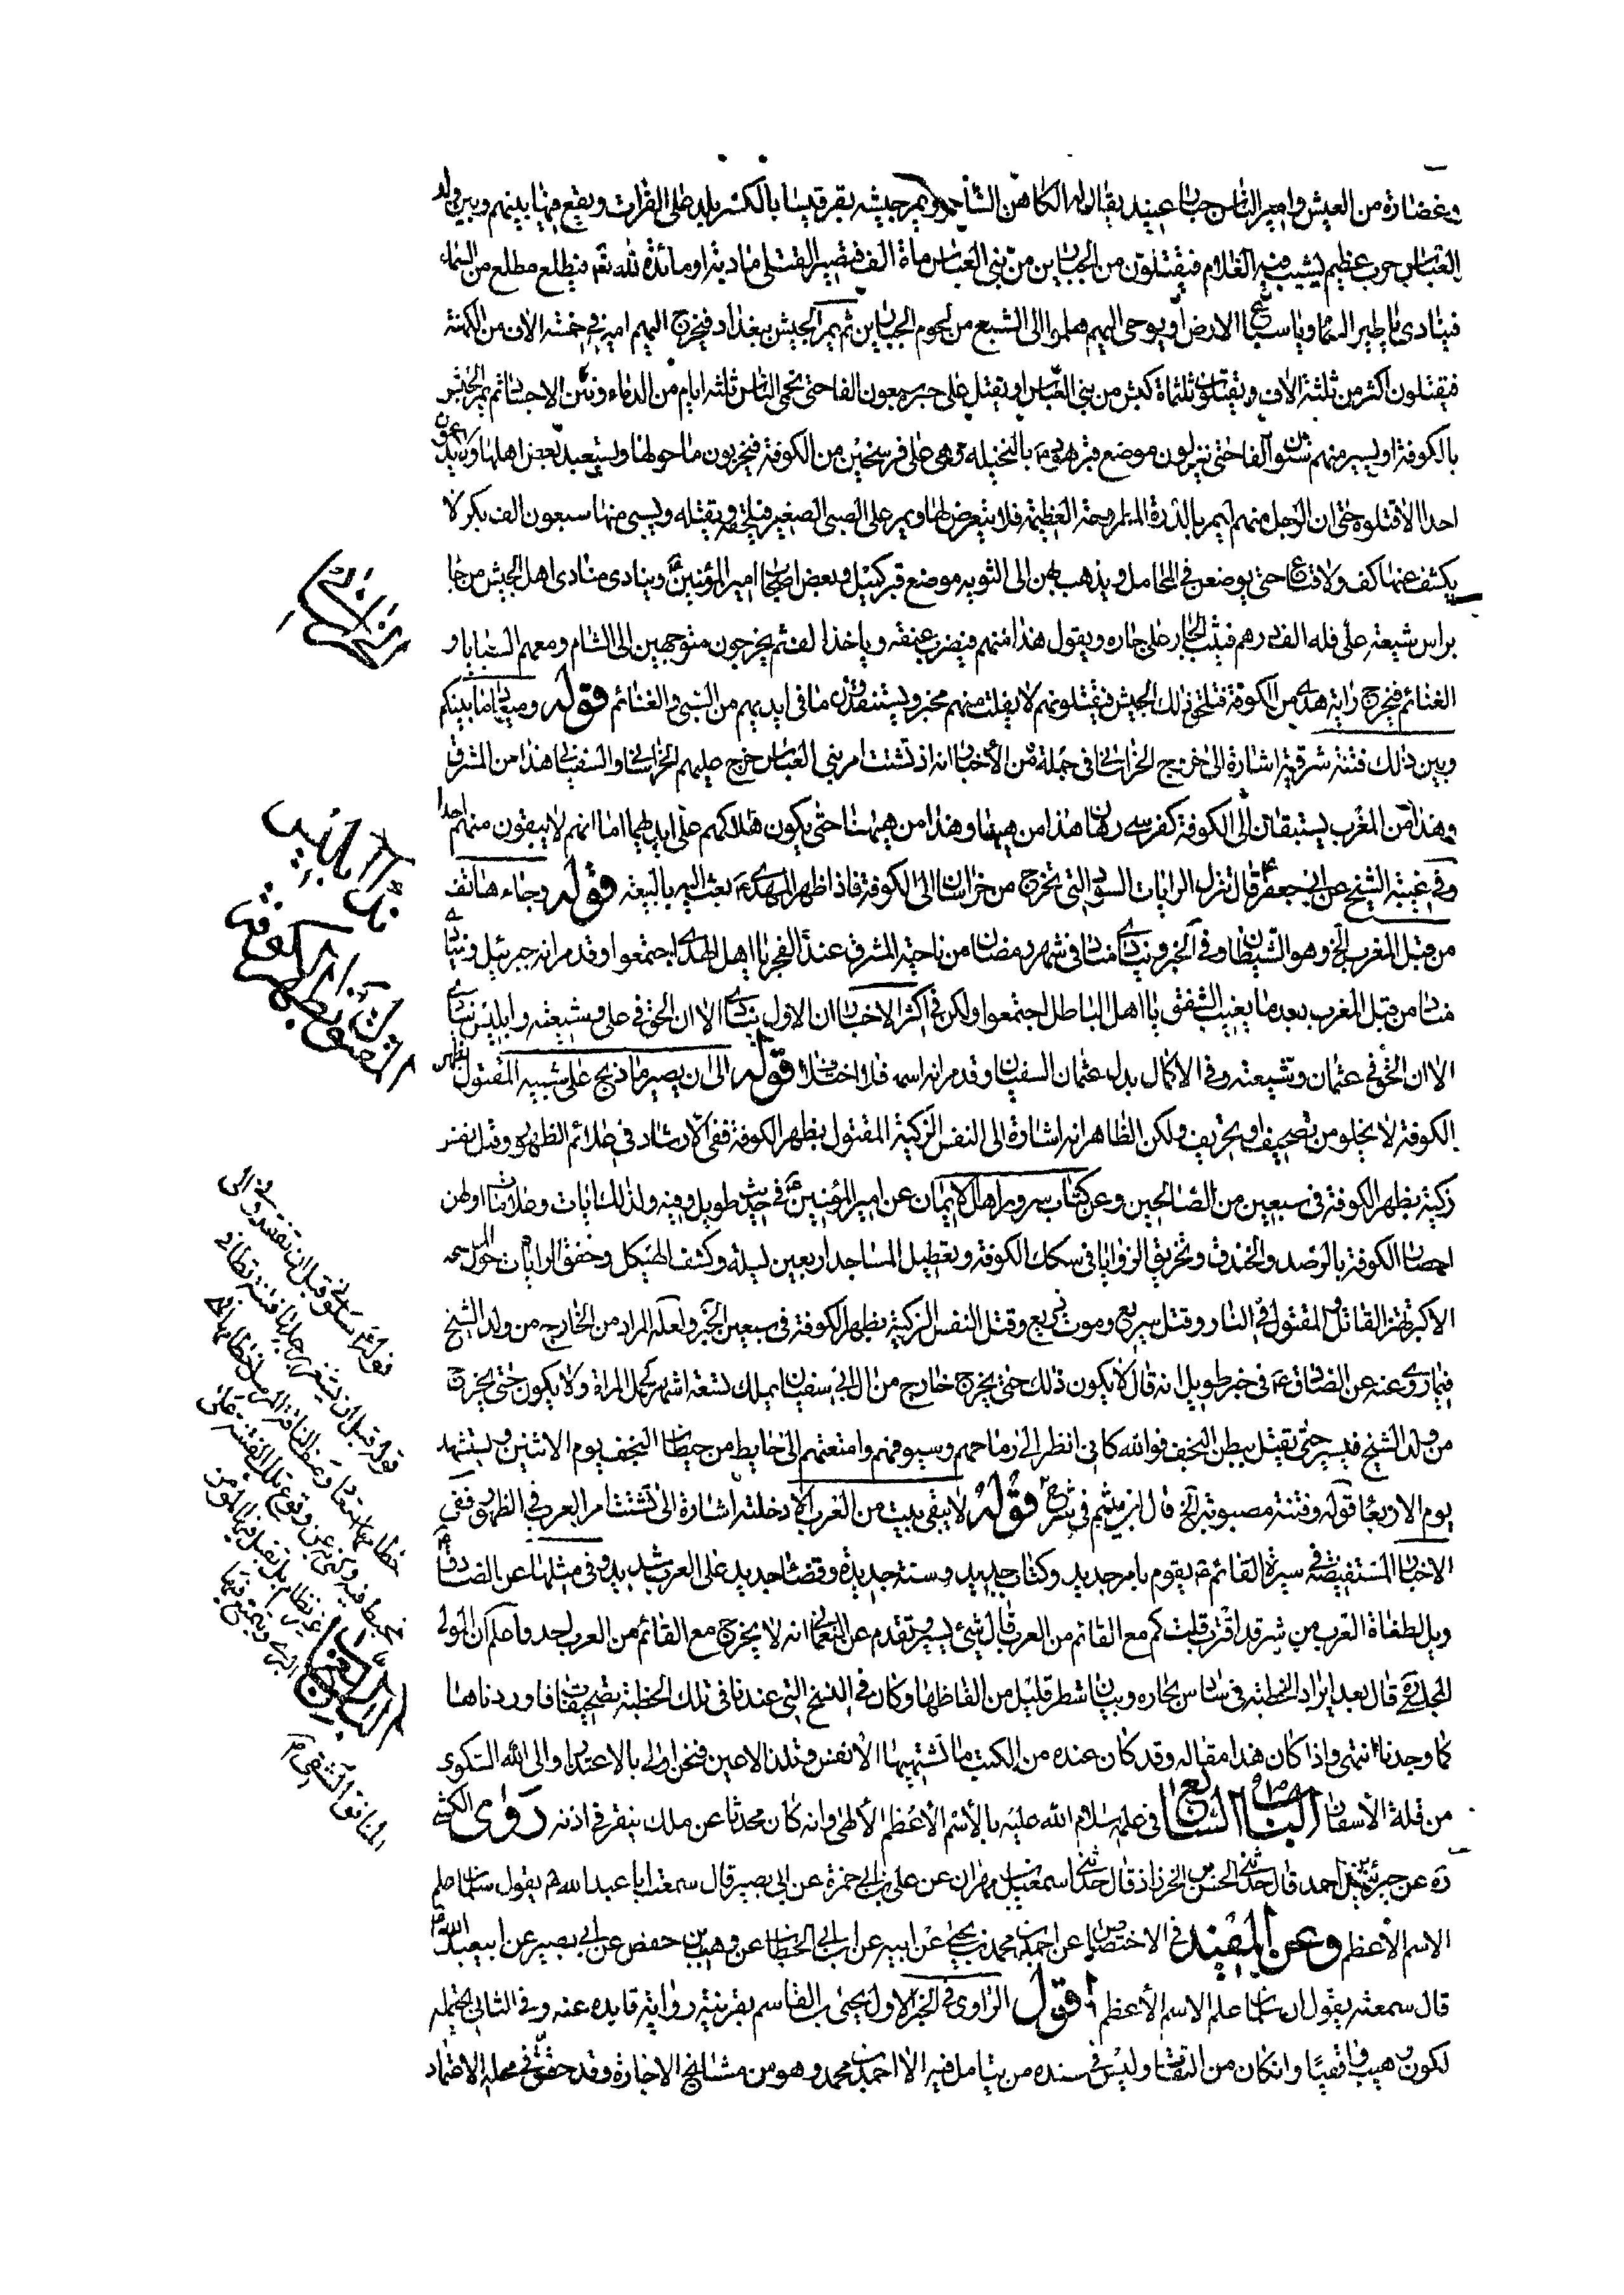 وغضارة من العيش وامير الناس جبار عنيد يقال له الكاهن الساحر ويمر جيشه بقرقيسا بالكسر بلد على الفرات ويقع فيها بينهم وبين ولد
العباس حرب عظيم يشيب فيه الغلام فيقتلون من الجبارين من بني العباس ماة الف فيصير القتلى مادبة او مائدة لله تعالى فيطلع مطلع من السماء
فينادى يا طير السماء ويا سباع الارض او يوحى اليهم هلموا الى الشبع من لحوم الجبارين ثم يمر الجيش ببغداد فيخرج اليهم امير في خمسة الاف من الكهنة
فيقتلون اكثر من ثلثة الاف ويقتلون ثلثماة كبش من بني العباس او يقتل على جسر سبعون الفا حتى تحمى الناس ثلثة ايام من الدماء ونتن الاجساد ثم يمر الجيش
بالكوفة او يسير منهم ستون الفا حتى ينزلون موضع قبر هود بالنخيلة وهى على فرسخين من الكوفة فيخربون ما حولها ويستعبد بعض اهلها ولا يدعون
احدا الا قتلوه حتى ان الرجل منهم ليمر بالدرة المطروحة العظيمة فلا يتعرض لها ويمر على الصبى الصغير فيلحقه ويقتله ويسبى منها سبعون الف بكر لا
يكشف عنها كف ولا قناع حتى يوضعن في المحامل ويذهب بهن الى الثوية موضع قبر كميل وبعض اصحاب امير المؤمنين وينادى منادى اهل الجيش من جاء
براس شيعة على فله الف درهم فيثب الجار على جاره ويقول هذا منهم فيضرب عنقه وياخذ الف ثم يخرجون متوجهين الى الشام ومعهم السبايا و
الغنائم فيخرج راية هدى من الكوفة فتلحق ذلك الجيش فيقتلونهم لا يفلت منهم مخبر ويستنقذون ما فى ايديهم من السبى والغنائم قوله وميعاد ما بينكم
وبين ذلك فتنة شرقية اشارة الى خروج الخراسانى فى جملة من الأخبار انه اذ تشتت امر بنى العباس خرج عليهم الخراسانى والسفيانى هذا من المشرق
وهذا من المغرب يستبقان الى الكوفة كفرسى رهان هذا من هيهنا وهذا من هيهنا حتى يكون هلاكهم على ايديهما اما انهم لا يبقون منهم احدا
وفى غيبة الشيخ عن ابى جعفر قال تنزل الرايات السود التى تخرج من خراسان الى الكوفة فاذا ظهر المهدى بعث اليه بالبيعة قوله وجاء هاتف
من قبل المغرب الخ وهو الشيطان وفى الخبر وينادى مناد فى شهر رمضان من ناحية المشرق عند الفجر يا اهل الهدى اجتمعوا وقد مر انه جبرئيل وينادى
مناد من قبل المغرب بعد ما يغيب الشفق يا اهل الباطل اجتمعوا ولكن فى اكثر الاخبار ان الاول ينادى الا ان الحق فى على وشيعته وابليس ينادى
الا ان الحق فى عثمان وشيعته وفى الاكمال بدل عثمان السفيانى وقد مر انه اسمه فلا اختلاف قوله الى ان يصير ما ذبح على شبيه المقتول بظهر
الكوفة لا يخلو من تصحيف او تحريف ولكن الظاهر انه اشارة الى النفس الزكية المقتول بظهر الكوفة ففى الارشاد فى علائم الظهور وقتل نفس
زكية بظهر الكوفة فى سبعين من الصالحين وعن كتاب سرور اهل الايمان عن امير المؤمنين فى حديث طويل وفيه ولذلك ايات وعلامات اولهن
احصار الكوفة بالرصد والخندق وتخريق الزوايا فى سكك الكوفة وتعطيل المساجد اربعين ليلة وكشف الهيكل وخفق الرايات حول المسجد
الاكبر تهتز القاتل والمقتول فى النار وقتل سريع وموت ذريع وقتل النفس الزكية بظهر الكوفة فى سبعين الخبر ولعله المراد من الخارجه من ولد الشيخ
فيما روى عنه عن الصادق فى خبر طويل انه قال لا يكون ذلك حتى يخرج خارج من ال ابى سفيان يملك تسعة اشهر كحمل المراة ولا يكون حتى يخرج
من ولد الشيخ فيسير حتى يقتل ببطن النجف فوالله كانى انظر الى رماحهم وسيوفهم وامتعتهم الى حايط من حيطان النجف يوم الاثنين ويستشهد
يوم الاربعا قوله وفتنة مصبوبة الخ قال ابن ميثم فى شرح قوله لا يبقى بيت من العرب الا دخلته اشارة الى تشتت امر العرب فى الظهور ففى
الاخبار المستفيضة فى سيرة القائم يقوم بامر جديد وكتاب جديد وسنة جديدة وقضاء جديد على العرب شديد وفى مثلها عن الصادق
ويل لطغاة العرب من شر قد اقترب قلت كم مع القائم من العرب قال شىء يسير وتقدم عن النعمانى انه لا يخرج مع القائم من العرب احد واعلم ان المولى
المجلسى قال بعد ايراد الخطبة فى سادس بحاره وبيان شطر قليل من الفاظها وكان فى النسخ التى عندنا فى تلك الخطبة تصحيفات فاوردناها
كما وجدنا انتهى واذا كان هذا مقاله وقد كان عنده من الكتب ما تشتهيها الانفس وتلذ الاعين فنحن اولى بالاعتذار والى الله الشكوى
من قلة الأسفار الباب السابع فى علمه سلام الله عليه بالأسم الأعظم الألهى وانه كان محدثا عن ملك ينقر فى اذنه روى الكشى
ره عن جبرئيل بن احمد قال حدثنى الحسن بن الخرزاد قال حدثنى اسمعيل بن مهران عن على بن ابى حمزة عن ابى بصير قال سمعت ابا عبد الله يقول سلمان علم
الاسم الأعظم وعن المفيد فى الاختصاص عن احمد بن محمد بن يحيى عن ابيه عن ابن ابى الخطاب عن وهيب بن حفص عن ابى بصير عن ابيعبد الله
قال سمعته يقول ان سلمان علم الاسم الأعظم اقول الراوى فى الخبر الاول يحيى بن القاسم بقرينة رواية قايده عنه وفى الثانى يحتمله
لكون وهيب واقفيا وان كان من الثقات وليس فى سنده من يتامل فيه الا احمد بن محمد وهو من مشايخ الاجازة وقد حقق فى محله الاعتماد
الخراسانى
نداء ابليس
قوله سلونى قبل ان تفقدونى الى
قوله قبل ان تشغر برجلها فتنة تطا فى
المنافق الشقى